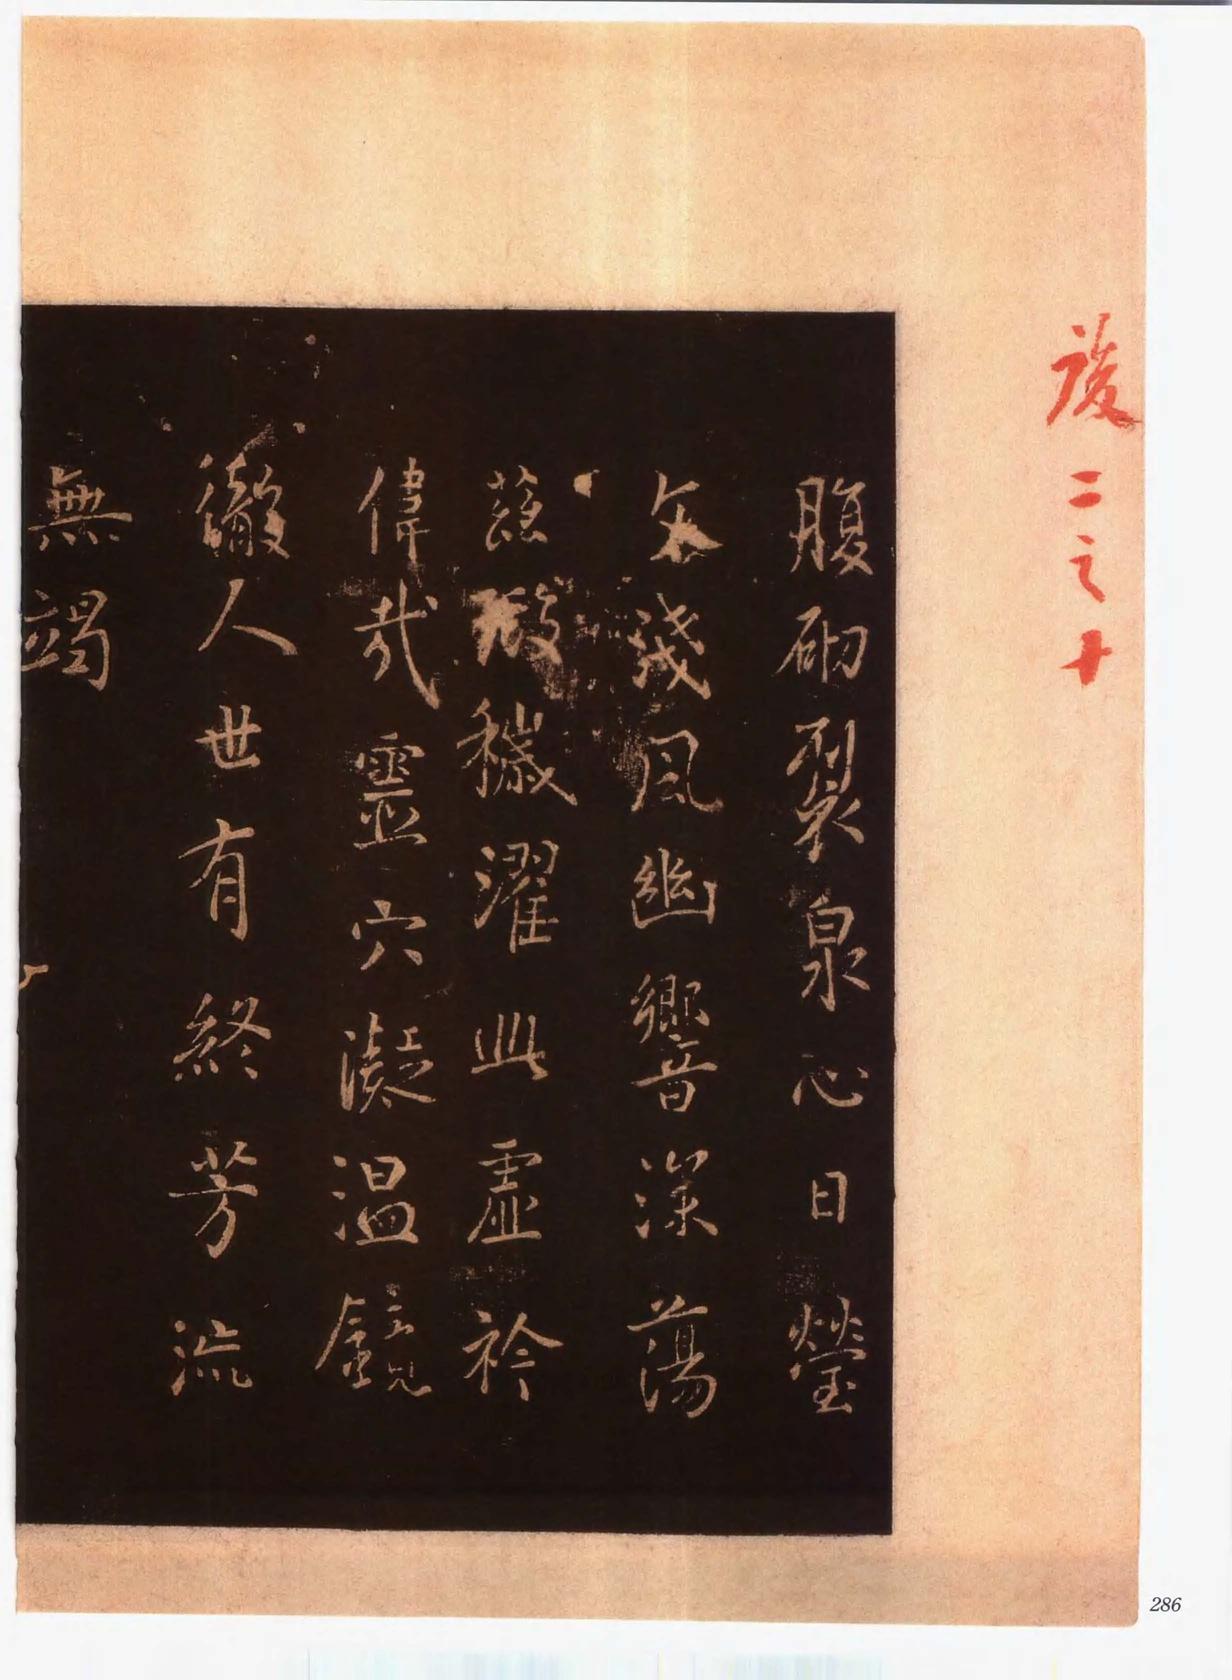 後二之十
腹砌裂泉心日瑩
文淺風幽響深蕩
茲瑕穢濯此虛衿
偉哉靈穴凝温鏡
澈人世有終芳流
無竭
286